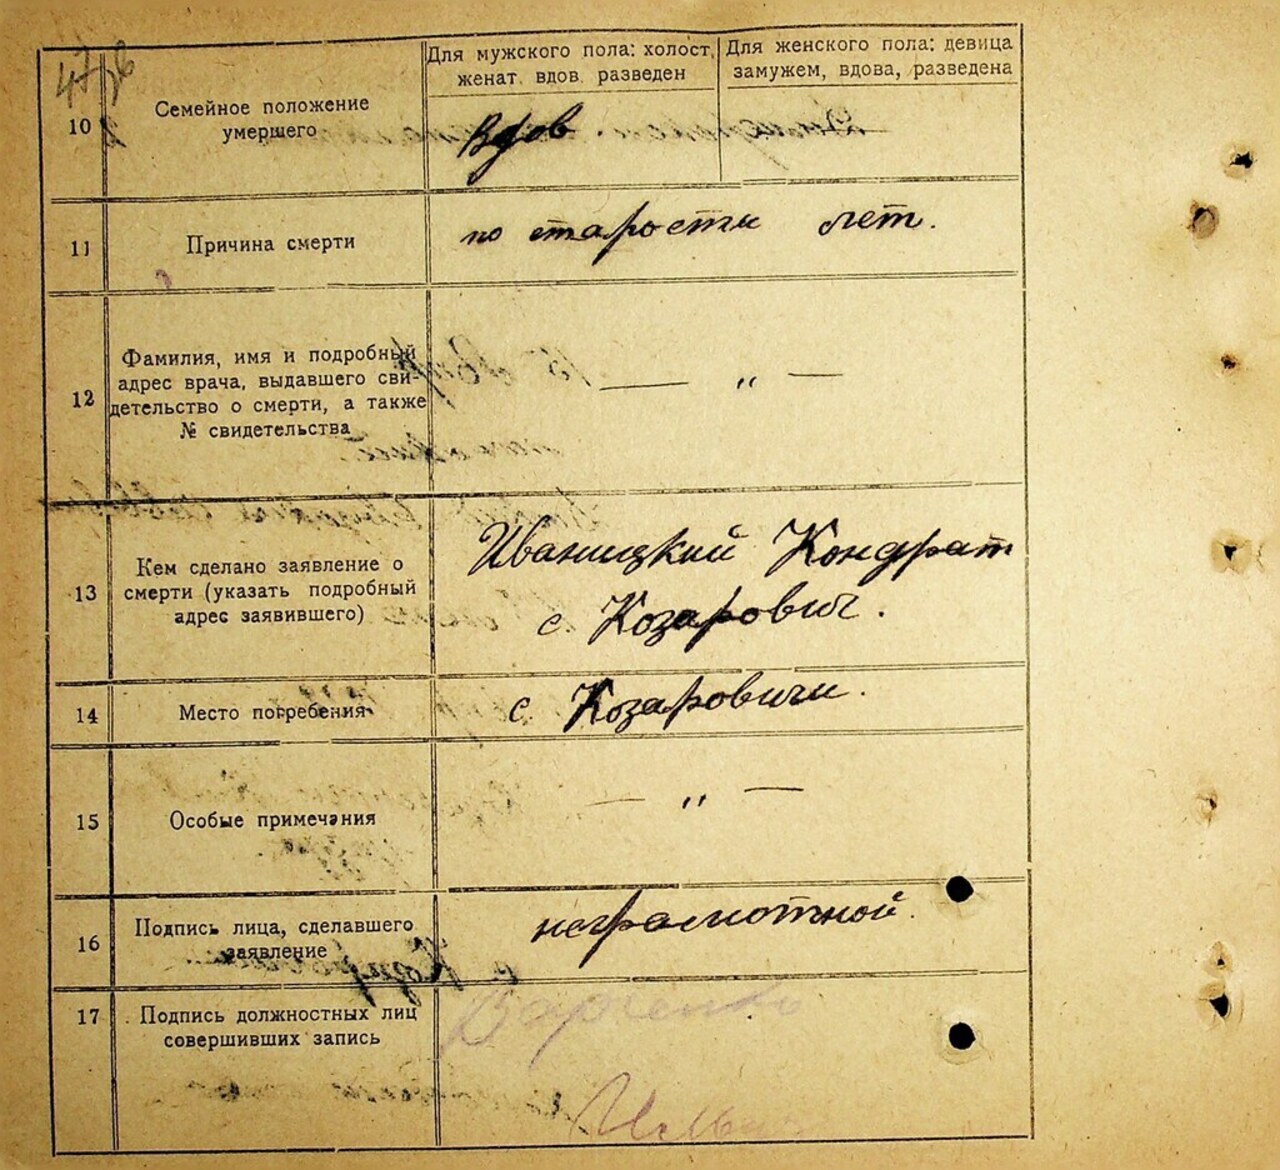 Для мужского пола: холост, женат вдов. разведен
Для женского пола: девица замужем, вдова, разведена
10
Семейное положение
умершего
вдов
11
Причина смерти
по старости лет.
12
Фамилия, имя и подробный
адрес врача, выдавшего сви-
детельство о смерти, а также
№ свидетельства
— „ —
13
Кем сделано заявление о
смерти (указать подробный
адрес заявившего)
Иваницкий Кондрат
с Козарович.
14
Место погребения
с. Козаровичи.
15
Особые примечания
— „ —
16
Подпись лица, сделавшего
заявление
неграмотной.
17
Подпись должностных лиц
совершивших запись